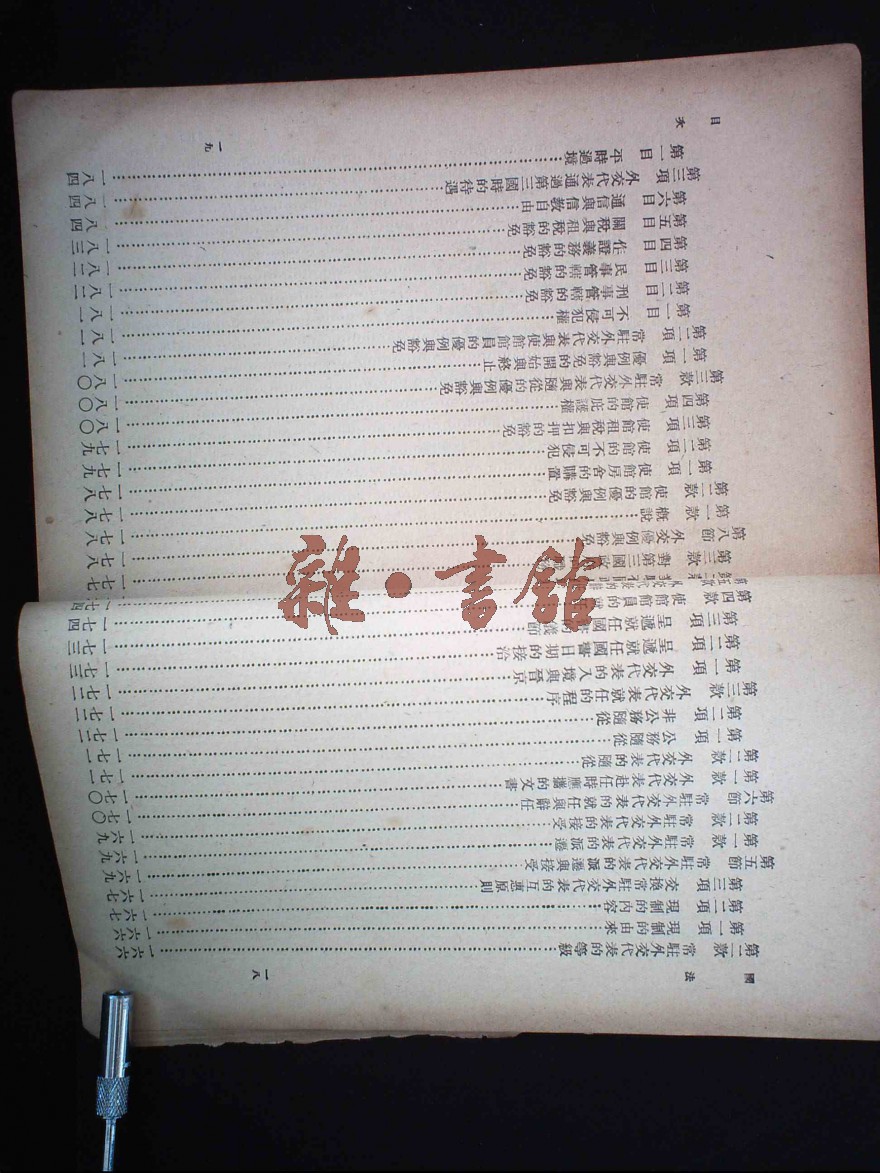 國 法
一八
第二款 常駐外交代表的等級……一六六
第一項 現制的由來……一六六
第二項 現制的內容……一六七
第三項 交換常駐外交代表的互惠原則……一六七
第五節 常駐外交代表的派遷與接受……一六九
第一款 常駐外交代表的派遷……一六九
第二款 常駐外交代表的接受……一六九
第六節 常駐外交代表的就任與辭任……一七〇
第一款 外交代表赴任時應攜的文書……一七〇
第二款 外交代表的隨從……一七一
第一項 公務隨從……一七一
第二項 非公務隨從……一七二
第三款 外交代表就任的程序……一七二
第一項 外交代表的入境與晉京……一七二
第二項 呈遞就任國書日期的接洽……一七三
第三項 呈遞就任國書的儀節……一七三
第四款 使館館員的……一七四
第三款 對第三國……一七七
第八節 外交優例與豁免……一七八
第一款 概說……一七八
第二款 使館的優例與豁免……一七八
第一項 使館房舍的購置……一七八
第二項 使館的不可侵犯……一七九
第三項 使館租稅與扣押的豁免……一七九
第四項 使館的庇護權……一八〇
第三款 常駐外交代表與隨從的優例與豁免……一八〇
第一項 優例與豁免的開始與終止……一八〇
第二項 常駐外交代表與使館館員的優例與豁免……一八一
第一目 不可侵犯權……一八一
第二目 刑事管轄的豁免……一八一
第三目 民事管轄的豁免……一八二
第四目 作證義務的豁免……一八二
第五目 關稅與租稅的豁免……一八三
第六目 通信與信教自由……一八四
第三項 外交代表通過第三國時的待遇……一八四
第一目 平時過境……一八四
目 次
一九
雜·書館